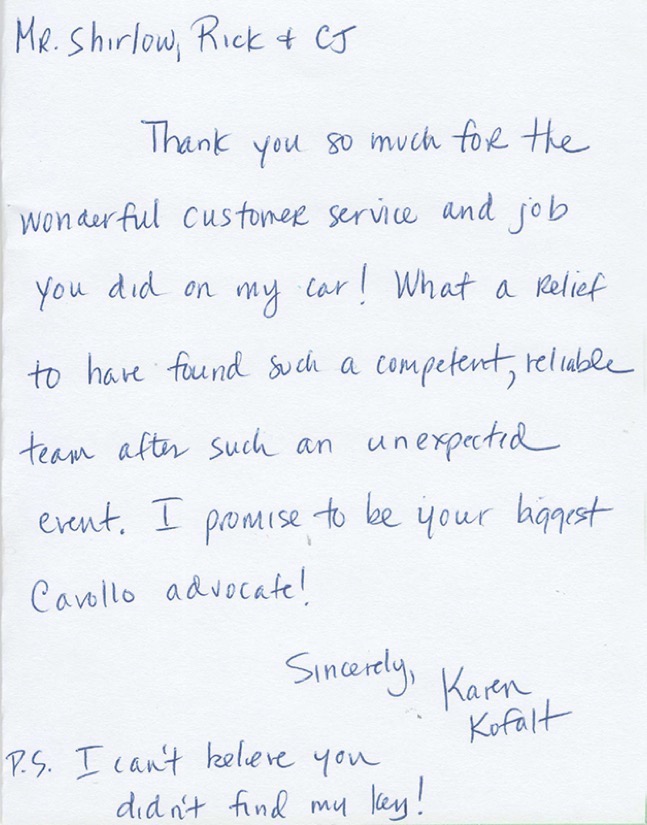 Mr. Shirlow, Rick & CJ
Thank you so much for the
wonderful customer service and job
you did on my car! What a relief
to have found such a competent, reliable
team after such an unexpected
event. I promise to be your biggest
Cavollo advocate!
Sincerely,
Karen
Kofalt
P.S. I can't believe you
didn't find my key!